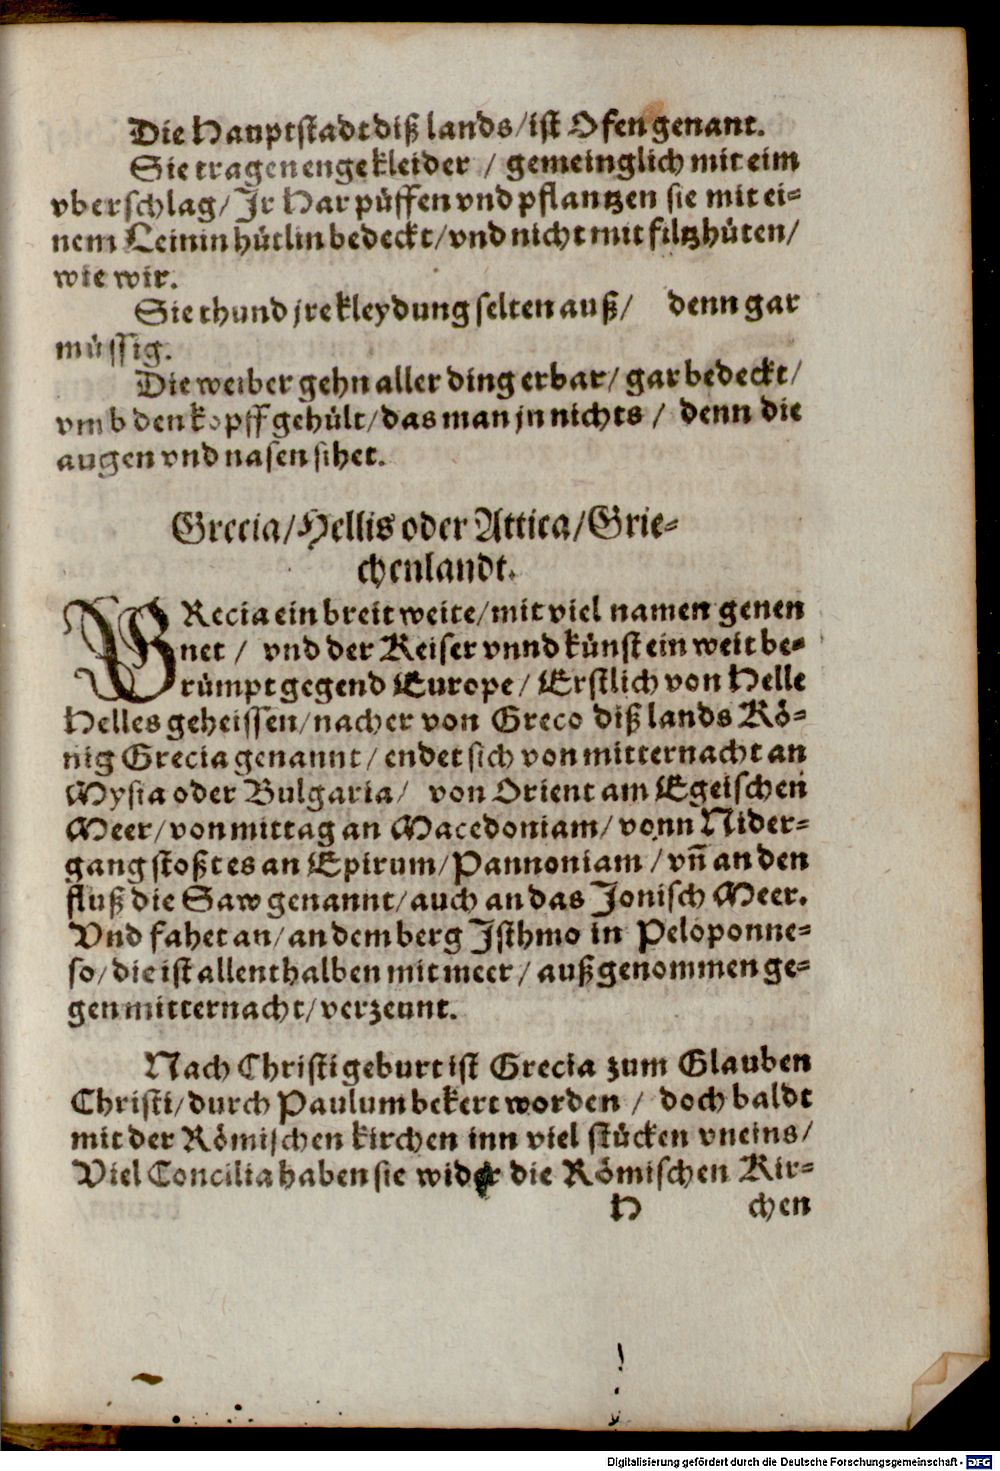 Die Hauptstadt diß lands/ist Ofen genant.
Sie tragen enge kleider / gemeinglich mit eim
vberschlag/Jr Har püffen vnd pflantzen sie mit ei-
nem Leinin hütlin bedeckt/vnd nicht mit filtzhüten/
wie wir.
Sie thund jre kleydung selten auß/ denn gar
müssig.
Die weiber gehn aller ding erbar/gar bedeckt/
vmb den kopff gehült/das man jn nichts / denn die
augen vnd nasen sihet.
Grecia/Hellis oder Attica/Grie-
chenlandt.
GRecia ein breit weite/mit viel namen genen
net / vnd der Keiser vnnd künst ein weit be-
rümpt gegend Europe/ Erstlich von Helle
Helles geheissen/nacher von Greco diß lands Kö-
nig Grecia genannt/endet sich von mitternacht an
Mysia oder Bulgaria/ von Orient am Egeischen
Meer/von mittag an Macedoniam/vonn Nider-
gang stoßt es an Epirum/Pannoniam/vn̄ an den
fluß die Saw genannt/auch an das Jonisch Meer.
Vnd fahet an/an dem berg Jsthmo in Peloponne-
so/die ist allenthalben mit meer/außgenommen ge-
gen mitternacht/verzeunt.
Nach Christi geburt ist Grecia zum Glauben
Christi/durch Paulum bekert worden / doch baldt
mit der Römischen kirchen inn viel stücken vneins/
Viel Concilia haben sie wider die Römischen Kir-
H chen
Digitalisierung gefördert durch die Deutsche Forschungsgemeinschaft - DFG